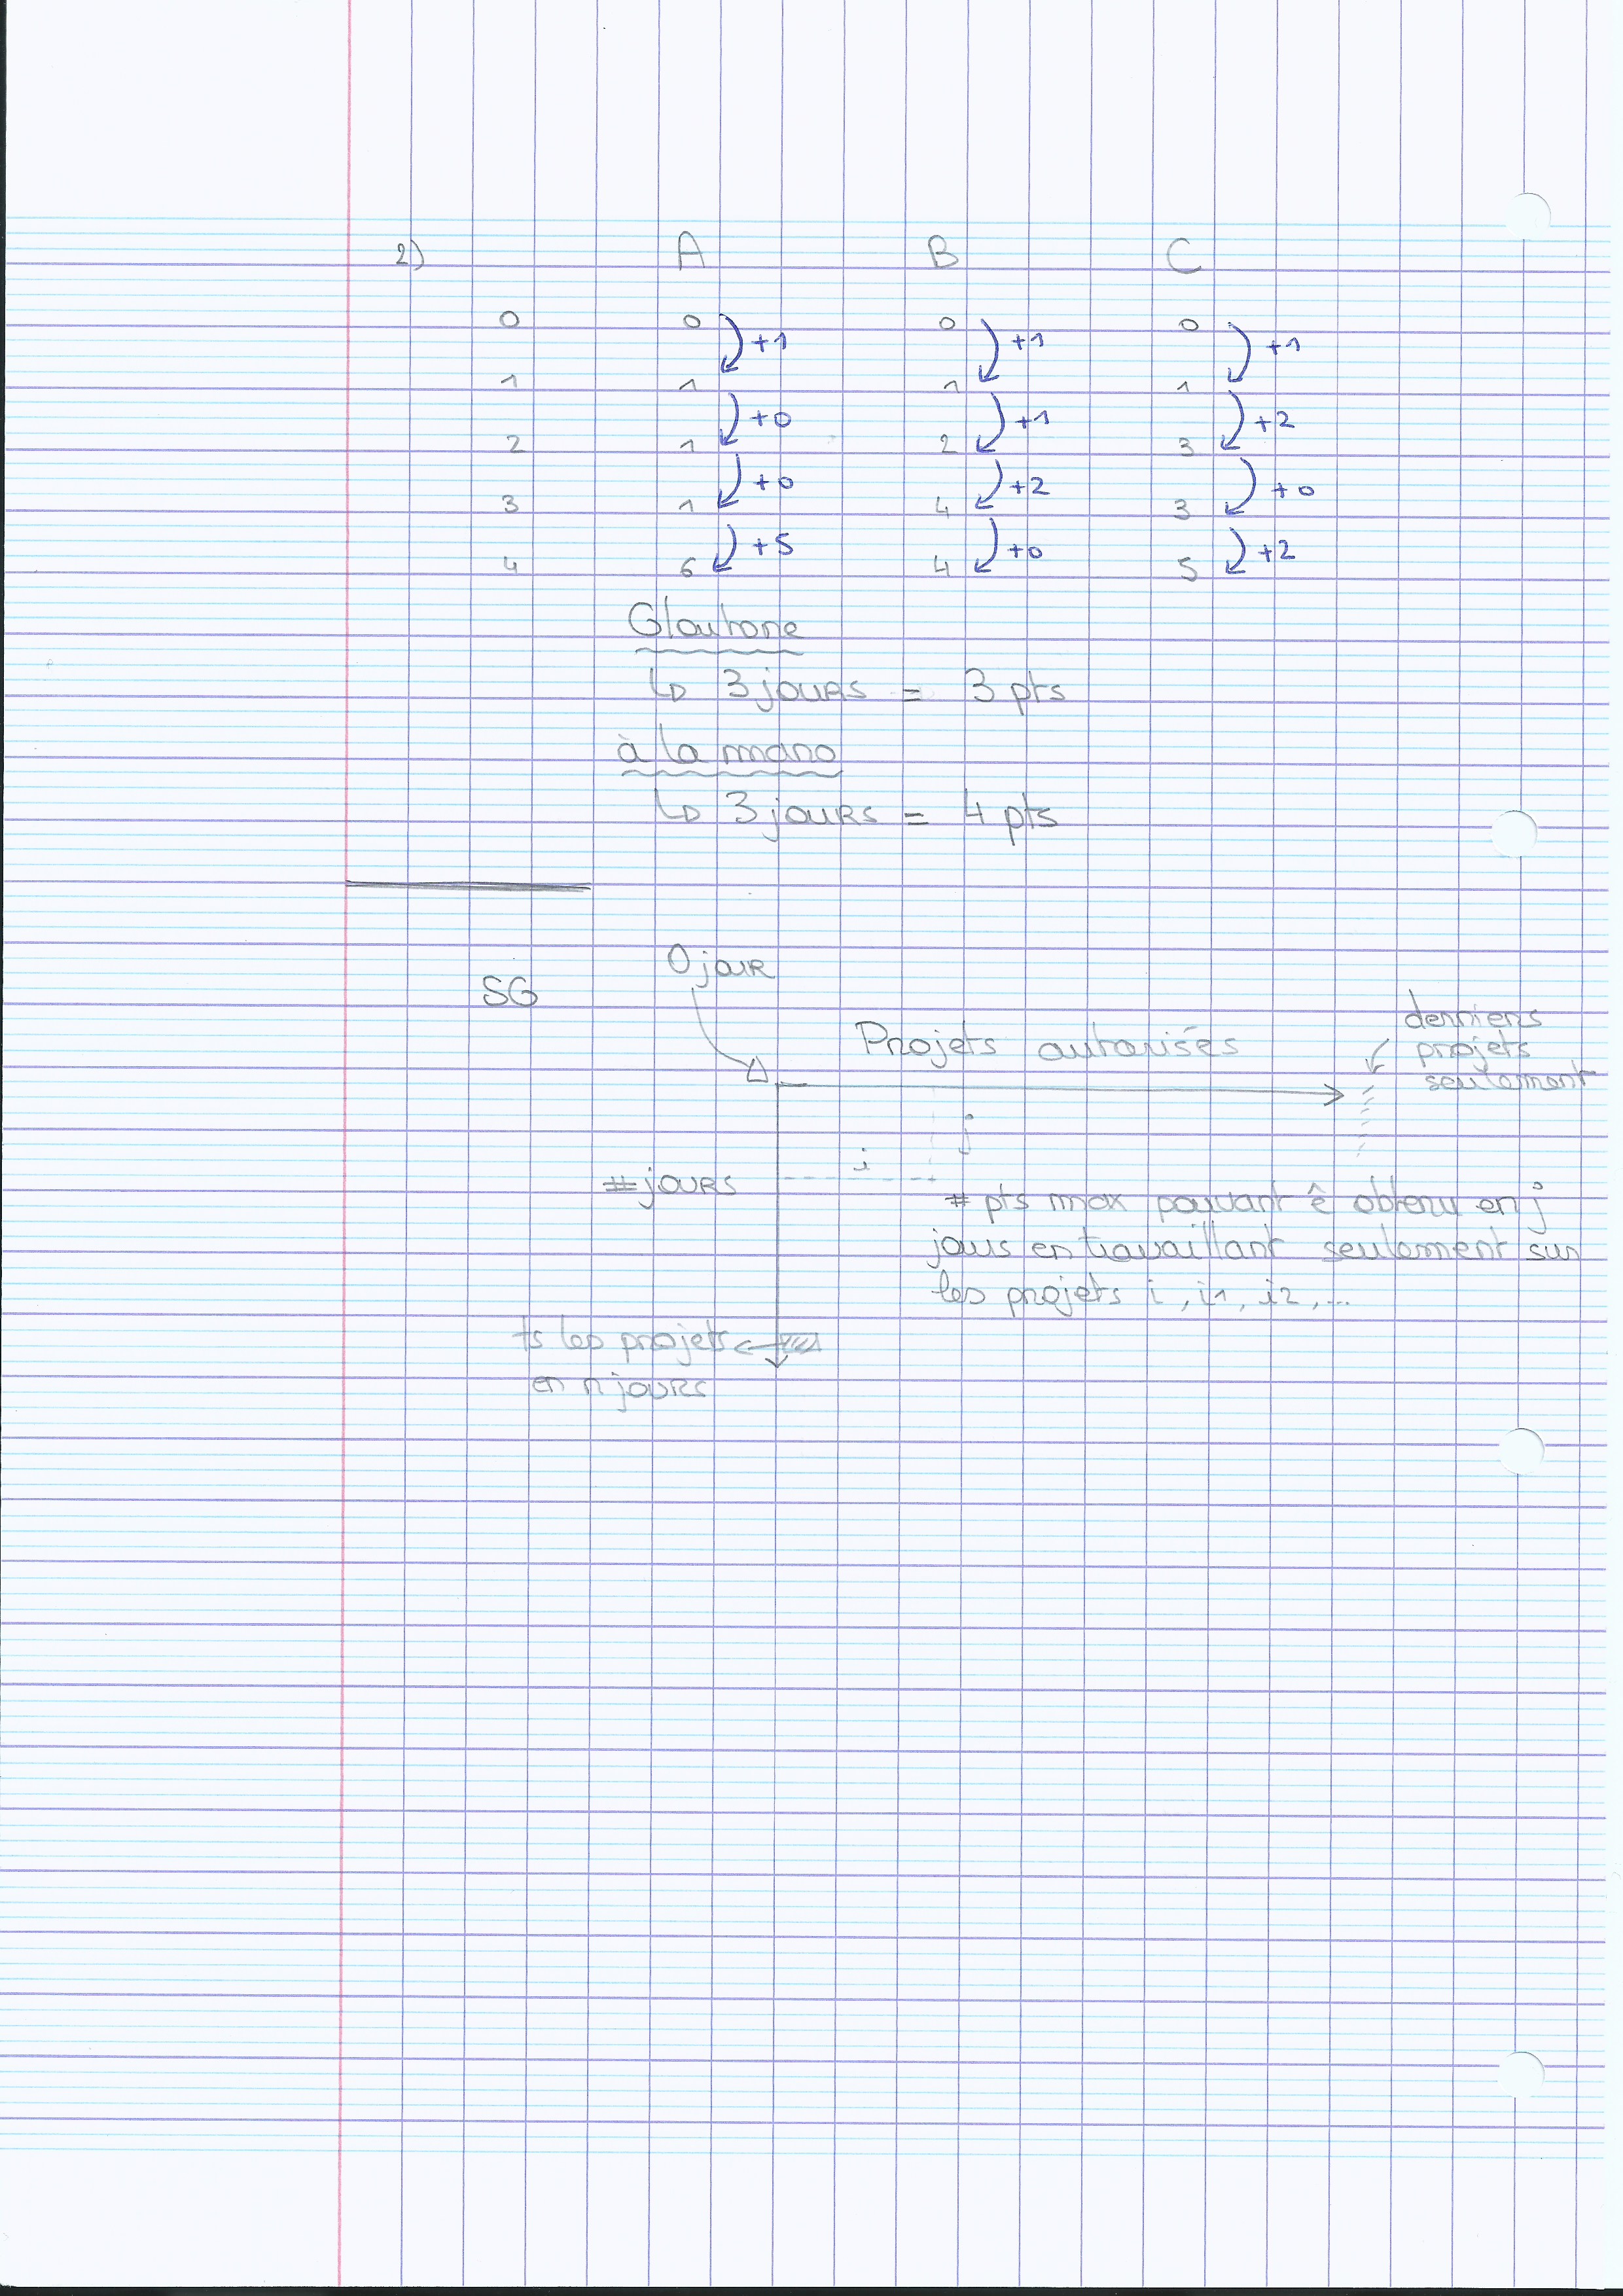 2) A B C
0 0 +1 0 +1 0 +1
1 1 +0 1 +1 1 +2
2 1 +0 2 +2 3 +0
3 1 +5 4 +0 3 +2
4 6 4 5
Gloutone
↳ 3 jours = 3 pts
à la mano
↳ 3 jours = 4 pts
0 jour
SG
Projets autorisés
derniers
projets
seulement
j
i
#jours
# pts max pouvant ê obtenu en j
jours en travaillant seulement sur
les projets i, i1, i2, ...
ts les projets
en n jours